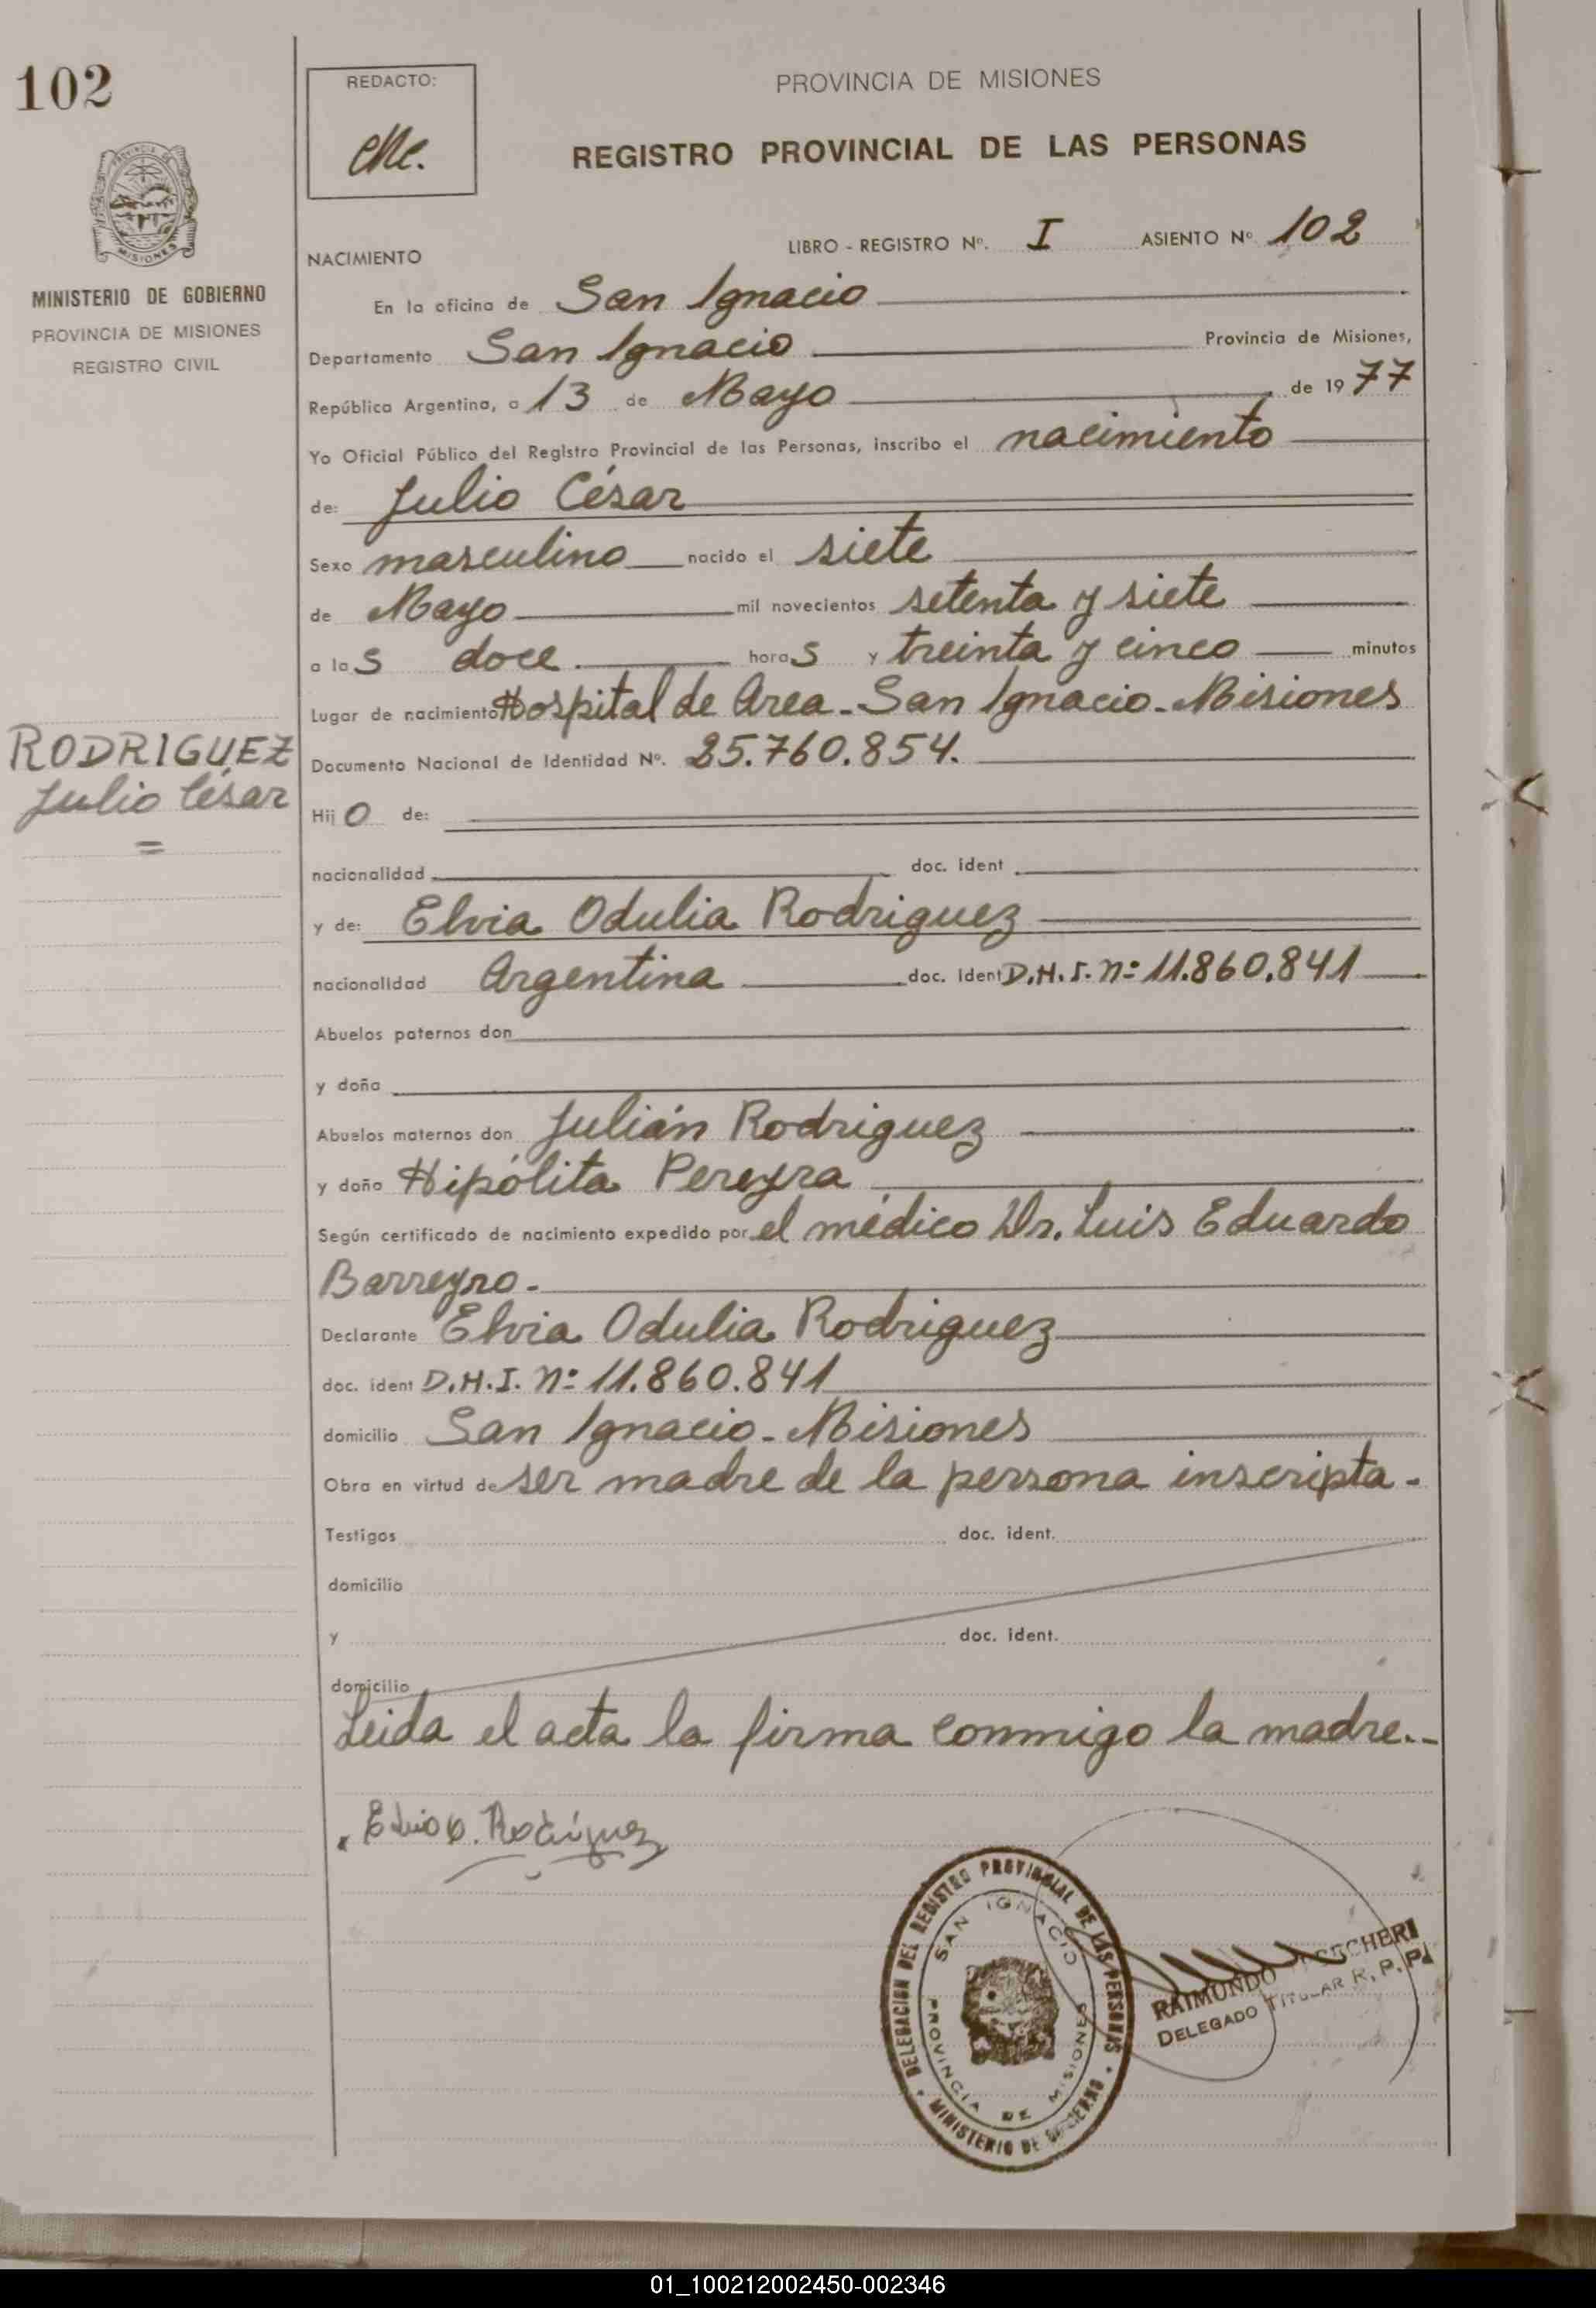 102
REDACTO:
PROVINCIA DE MISIONES
REGISTRO PROVINCIAL DE LAS PERSONAS
PROVINCIA DE
MISIONES
MINISTERIO DE GOBIERNO
PROVINCIA DE MISIONES
REGISTRO CIVIL
LIBRO - REGISTRO Nº. I ASIENTO Nº 102
NACIMIENTO
En la oficina de San Ignacio
Departamento San Ignacio Provincia de Misiones,
República Argentina, a 13 de Mayo de 1977
Yo Oficial Público del Registro Provincial de las Personas, inscribo el nacimiento
de: Julio César
Sexo masculino nacido el siete
de Mayo mil novecientos setenta y siete
a las doce horas y treinta y cinco minutos
Lugar de nacimiento Hospital de Area - San Ignacio - Misiones
RODRIGUEZ
Julio César
=
Documento Nacional de Identidad Nº. 25.760.854.
Hijo de:
nacionalidad doc. ident
y de: Elvia Odulia Rodriguez
nacionalidad Argentina doc. ident D.N.I. Nº 11.860.841
Abuelos paternos don
y doña
Abuelos maternos don Julián Rodriguez
y doña Hipólita Pereyra
Según certificado de nacimiento expedido por el médico Dr. Luis Eduardo
Barreyro.-
Declarante Elvia Odulia Rodriguez
doc. ident D.N.I. Nº 11.860.841
domicilio San Ignacio - Misiones
Obra en virtud de ser madre de la persona inscripta.
Testigos doc. ident.
domicilio
y doc. ident.
domicilio
Leida el acta la firma conmigo la madre.-
Elvia O. Rodríguez
DELEGACION DEL REGISTRO PROVINCIAL DE LAS PERSONAS
SAN IGNACIO
PROVINCIA DE MISIONES
MINISTERIO DE GOBIERNO
RAIMUNDO
DELEGADO TITULAR R. P. P.
01_100212002450-002346